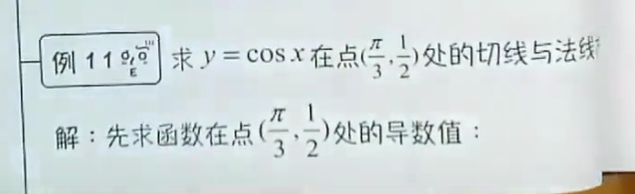 例 11 求 y = cos x 在点(π/3, 1/2)处的切线与法线
解：先求函数在点(π/3, 1/2)处的导数值：